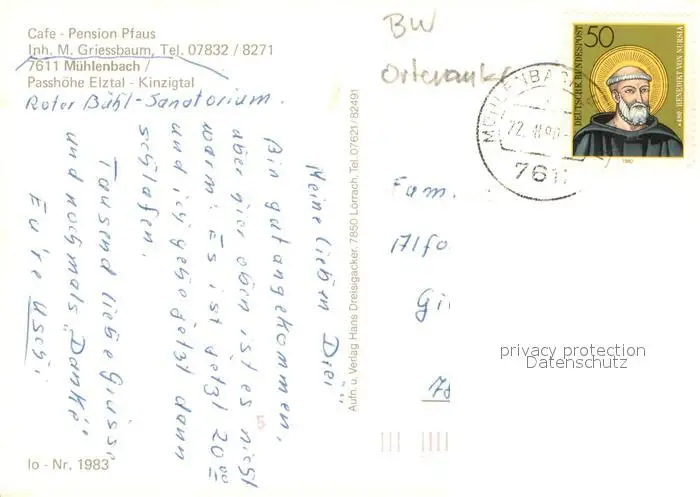 Cafe - Pension Pfaus
Inh. M. Griessbaum, Tel. 07832 / 8271
7611 Mühlenbach /
Passhöhe Elztal - Kinzigtal
Roter Bühl-Sanatorium.
Meine lieben Drei!
Bin gut angekommen,
aber hier oben ist es nicht
warm. Es ist jetzt 20⁰⁰
und ich gehe jetzt dann
schlafen.
Tausend liebe Grüsse
und nochmals "Danke"
Eure Uschi
Io - Nr. 1983
Aufn. u. Verlag Hans Dreisigacker, 7850 Lörrach, Tel. 07621/82491
5
BW
50
DEUTSCHE BUNDESPOST
BENEDIKT VON NURSIA
1980
MÜHLENBACH
22.
761
Fam.
Alfo
Gi
privacy protection
Datenschutz